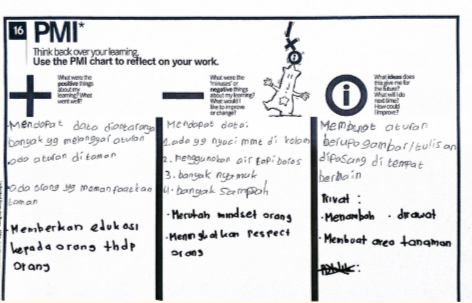 16 PMI*
Think back over your learning.
Use the PMI chart to reflect on your work.
What were the
positive things
about my
learning? What
went well?
Mendapat data diantaranya
banyak yg melanggar aturan
. ada aturan di taman
. ada orang yg memanfaatkan
taman
. Memberkan edukasi
kepada orang thdp
orang
What were the
"minuses" or
negative things
about my learning?
What would I
like to improve
or change?
Mendapat data:
1. ada yg nyuci mmt di kolam
2. menggunakan air tapi boros
3. banyak nyamuk
4. banyak sampah
. Merubah mindset orang
. Meningkatkan respect
orang
What ideas does
this give me for
the future?
What will I do
next time?
How could I
improve?
Membuat aturan
berupa gambar/tulisan
dipasang di tempat
bermain
Privat :
. Menambah . dirawat
. Membuat area tanaman